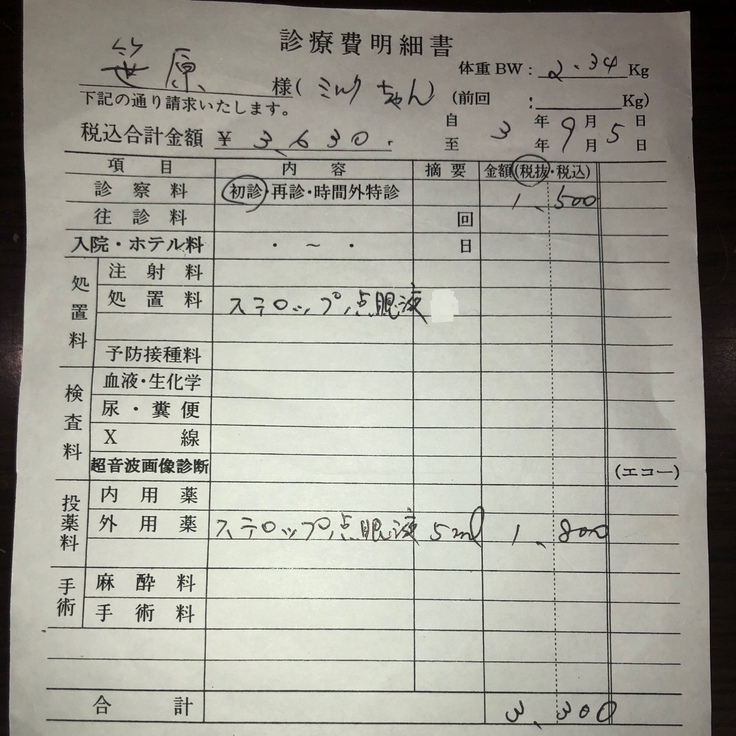 診療費明細書
笹原 様(ミルクちゃん)
体重BW: 2.34Kg
下記の通り請求いたします。
(前回 : Kg)
税込合計金額 ¥3,630.
自 3年9月5日
至 年 月 日
項目 内容 摘要 金額(税抜・税込)
診察料 初診・再診・時間外特診 1,500
往診料 回
入院・ホテル料 ・ ~ ・ 日
処置料
注射料
処置料 ステロップ点眼液
予防接種料
検査料
血液・生化学
尿・糞便
X線
超音波画像診断 (エコー)
投薬料
内用薬
外用薬 ステロップ点眼液 5ml 1,800
手術
麻酔料
手術料
合計 3,300